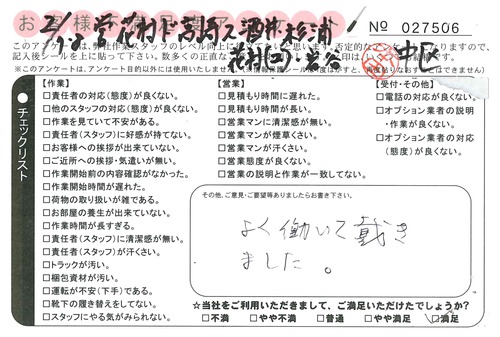 No 027506
このアンケートは、弊社作業スタッフのレベル向上に
記入後シールを上に貼って下さい。数多くの正直な
(※このアンケート目的以外には使用いたしません。
チェックリスト
【作業】
□責任者の対応(態度)が良くない。
□他のスタッフの対応(態度)が良くない。
□作業を見ていて不安がある。
□責任者(スタッフ)に好感が持てない。
□お客様への挨拶が出来ていない。
□ご近所への挨拶・気遣いが無い。
□作業開始前の内容確認がなかった。
□作業開始時間が遅れた。
□荷物の取り扱いが雑である。
□お部屋の養生が出来ていない。
□作業時間が長すぎる。
□責任者(スタッフ)に清潔感が無い。
□責任者(スタッフ)が汗くさい。
□トラックが汚い。
□梱包資材が汚い。
□運転が不安(下手)である。
□靴下の履き替えをしてない。
□スタッフにやる気がみられない。
【営業】
□見積もり時間に遅れた。
□見積もり時間が長い。
□営業マンに清潔感が無い。
□営業マンが煙草くさい。
□営業マンが汗くさい。
□営業態度が良くない。
□営業の説明と作業が一致してない。
【受付・その他】
□電話の対応が良くない。
□オプション業者の説明
・作業が良くない。
□オプション業者の対応
(態度)が良くない。
その他、ご意見・ご要望等ありましたらお書き下さい。
よく働いて戴き
ました。
☆当社をご利用いただきまして、ご満足いただけたでしょうか?
□不満 □やや不満 □普通 □やや満足 ☑満足